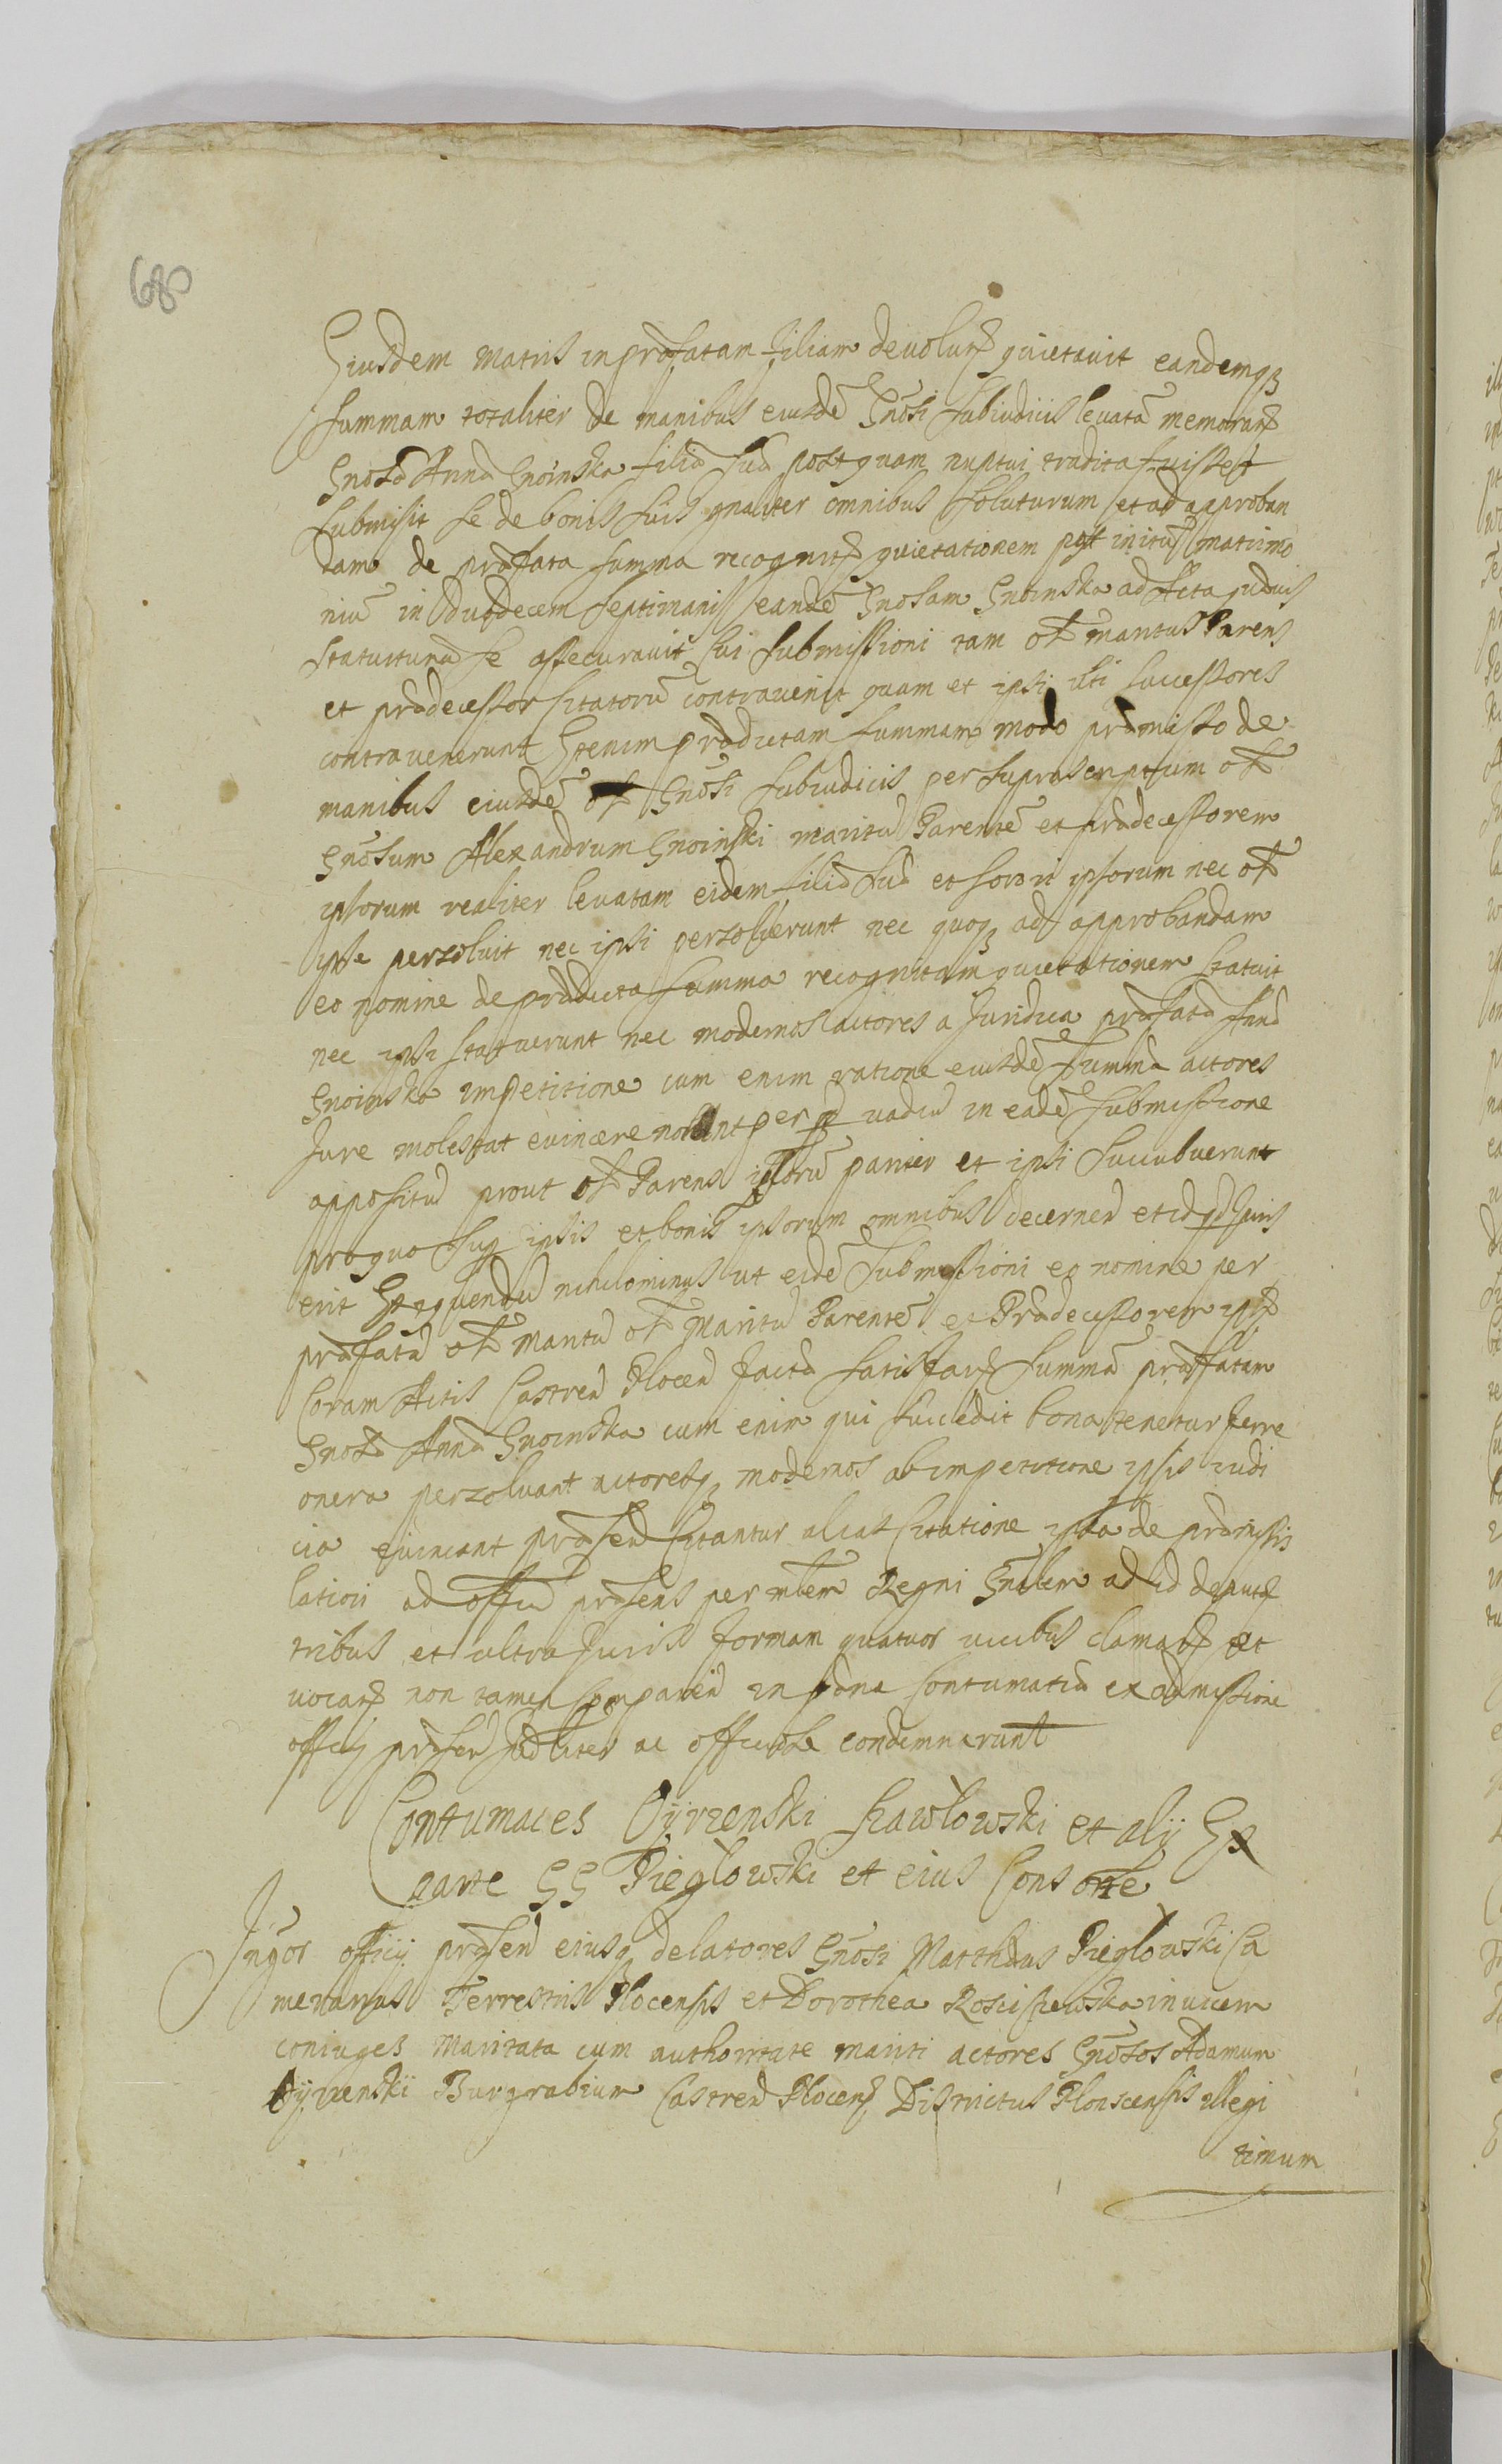 680
Eiusdem matris in præfatam filiam devolut quietavit eandemq
summam totaliter de manibus eiusdē Gnōsi Subiudicis levatā memorat
Gnosæ Annæ Gnoinska filiæ suæ postquam nuptui tradita fuisset
submisit se de bonis suis gnaliter omnibus soluturum et ad approban
dam de præfata summa recognit quietationem post initū matrimo
niū in duodecem septimanis eandē Gnosam Gnoinska ad Acta quævis
statuiturū se assecuravit Cui submissioni tam ol maritus Parens
et prædecessor Citatorū contravenit quam et ipsi uti successores
contravenerunt Etenim prædictam summam modo præmisso de
manibus eiusdē ol Gnōsi Subiudicis per suprascriptum ol
Gnōsum Alexandrum Gnoinski maritū Parentē et prædecessorem
ipsorum realiter levatam eidem filiæ suæ et sorori ipsorum nec ol
ipse persolvit nec ipsi persolverunt nec quoq ad approbandam
eo nomine de prædicta summa recognitam quietationem statuit
nec ipsi statuerunt nec modernos actores a Juridica præfatæ Annæ
Gnoinska impetitione cum enim ratione eiusdē summæ actores
Jure molestat evincere nolunt per q vadiū in eadē submissione
appositū prout ol Parens ipsorū pariter et ipsi succubuerunt
pro quo sup ipsis et bonis ipsorum omnibus decernen et id qd Juris
erit Exequendū nihilominus ut eidē submissioni eo nomine per
præfatū ol maritū ol Maritū Parentē et Prædecessorem ips
Coram Actis Castren Plocen factæ satisfac summā præfatam
Gnosæ Annæ Gnoinska cum enim qui succedit bona tenetur ferre
onera persolvant actoresq modernos ab impetitione ipsis iudi
cia evincant præsen Citantur alias Citatione ipsa de præmissis
latiori ad offm præsens per mlem Regni Gnalem ad id deput
tribus et ultra Juris formam quatuor vicibus clamat et
vocat non tamen Comparen in pœna Contumatiæ ex admissione
officij præsen Judliter ac officiose condemnarunt
Contumaces Oÿrzenski Szawłowski et alÿ Ex
parte GG Pieglowski et eius Consorte
Ingor officij præsen eiusq delatores Gnōsi Matthæus Pieglowski Ca
merarius Terrestris Plocensis et Dorothea Rosciszewska invicem
coniuges maritata cum authoritate mariti actores Gnōsos Adamum
Oÿrzenskii Burgrabium Castren Plocen Districtus Plonscensis illegi
timum